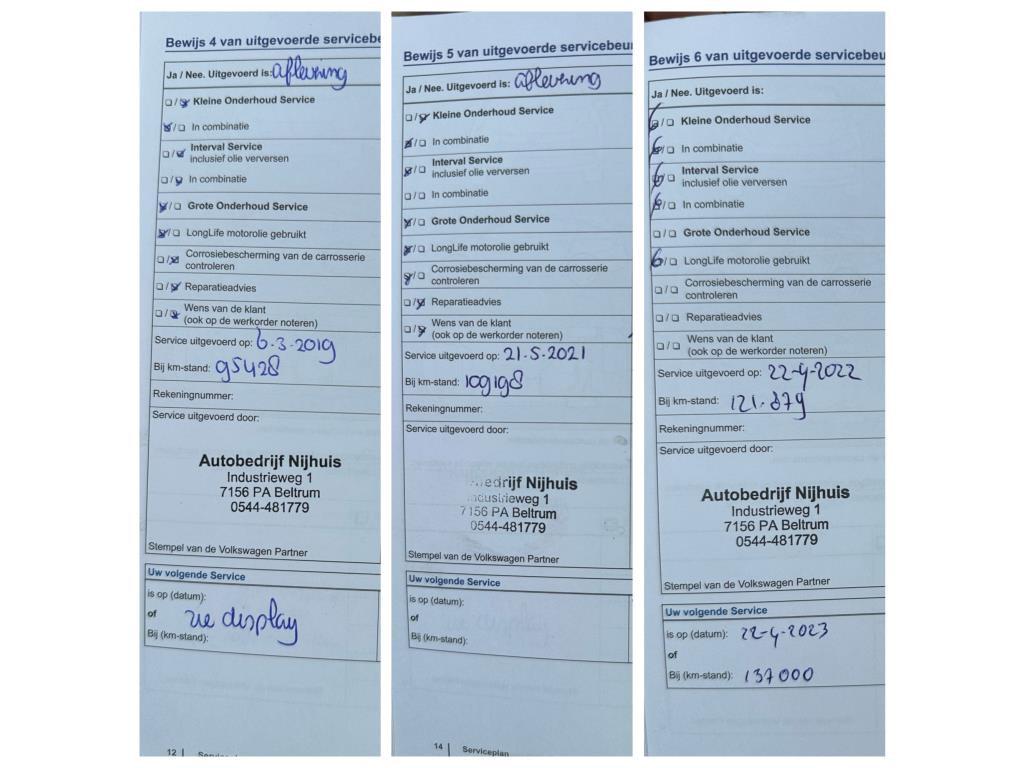 Bewijs 4 van uitgevoerde servicebe
Ja / Nee. Uitgevoerd is: aflevering
Kleine Onderhoud Service
In combinatie
Interval Service
inclusief olie verversen
In combinatie
Grote Onderhoud Service
LongLife motorolie gebruikt
Corrosiebescherming van de carrosserie
controleren
Reparatieadvies
Wens van de klant
(ook op de werkorder noteren)
Service uitgevoerd op: 6-3-2019
Bij km-stand: 95428
Rekeningnummer:
Service uitgevoerd door:
Autobedrijf Nijhuis
Industrieweg 1
7156 PA Beltrum
0544-481779
Stempel van de Volkswagen Partner
Uw volgende Service
is op (datum):
of zie display
Bij (km-stand):
12 | Serviceplan
Bewijs 5 van uitgevoerde servicebeur
Ja / Nee. Uitgevoerd is: aflevering
Kleine Onderhoud Service
In combinatie
Interval Service
inclusief olie verversen
In combinatie
Grote Onderhoud Service
LongLife motorolie gebruikt
Corrosiebescherming van de carrosserie
controleren
Reparatieadvies
Wens van de klant
(ook op de werkorder noteren)
Service uitgevoerd op: 21-5-2021
Bij km-stand: 109198
Rekeningnummer:
Service uitgevoerd door:
edrijf Nijhuis
Industrieweg 1
7156 PA Beltrum
0544-481779
Stempel van de Volkswagen Partner
Uw volgende Service
is op (datum):
of
Bij (km-stand):
14 | Serviceplan
Bewijs 6 van uitgevoerde servicebeu
Ja / Nee. Uitgevoerd is:
Kleine Onderhoud Service
In combinatie
Interval Service
inclusief olie verversen
In combinatie
Grote Onderhoud Service
LongLife motorolie gebruikt
Corrosiebescherming van de carrosserie
controleren
Reparatieadvies
Wens van de klant
(ook op de werkorder noteren)
Service uitgevoerd op: 22-4-2022
Bij km-stand: 121.879
Rekeningnummer:
Service uitgevoerd door:
Autobedrijf Nijhuis
Industrieweg 1
7156 PA Beltrum
0544-481779
Stempel van de Volkswagen Partner
Uw volgende Service
is op (datum): 22-4-2023
of
Bij (km-stand): 137000